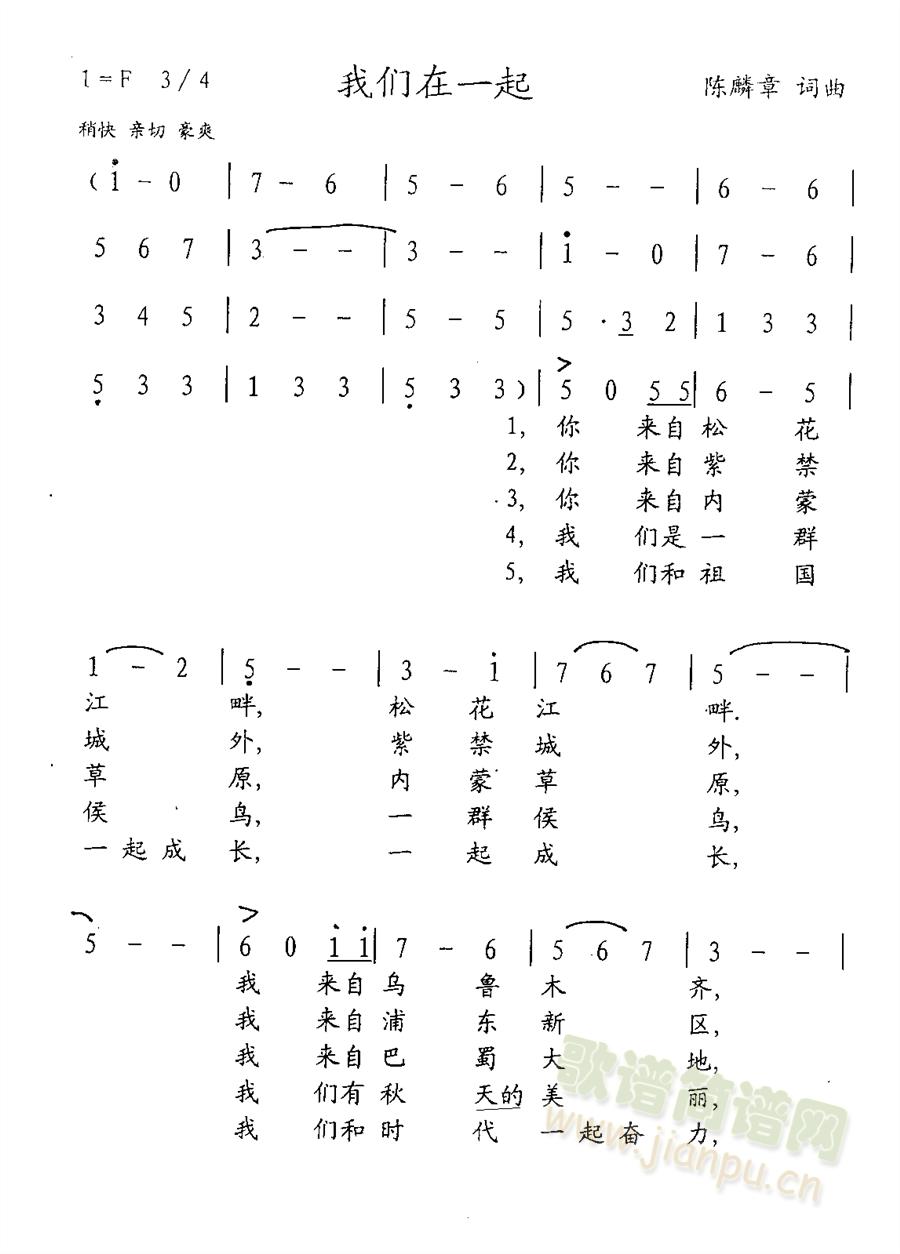 1=F 3/4 我们在一起 陈麟章 词曲
稍快 亲切 豪爽
( i - 0 | 7 - 6 | 5 - 6 | 5 - - | 6 - 6 |
5 6 7 | 3 - - | 3 - - | i - 0 | 7 - 6 |
3 4 5 | 2 - - | 5 - 5 | 5 · 3 2 | 1 3 3 |
5 3 3 | 1 3 3 | 5 3 3 ) | 5 0 5 5 | 6 - 5 |
1, 你 来自 松 花
2, 你 来自 紫 禁
3, 你 来自 内 蒙
4, 我 们是 一 群
5, 我 们和 祖 国
1 - 2 | 5 - - | 3 - i | 7 6 7 | 5 - - |
江 畔, 松 花 江 畔.
城 外, 紫 禁 城 外,
草 原, 内 蒙 草 原,
侯 鸟, 一 群 侯 鸟,
一 起 成 长, 一 起 成 长,
5 - - | 6 0 i i | 7 - 6 | 5 6 7 | 3 - - |
我 来自 乌 鲁 木 齐,
我 来自 浦 东 新 区,
我 来自 巴 蜀 大 地,
我 们有 秋 天的 美 丽,
我 们和 时 代 一 起 奋 力,
歌谱简谱网
www.jianpu.cn